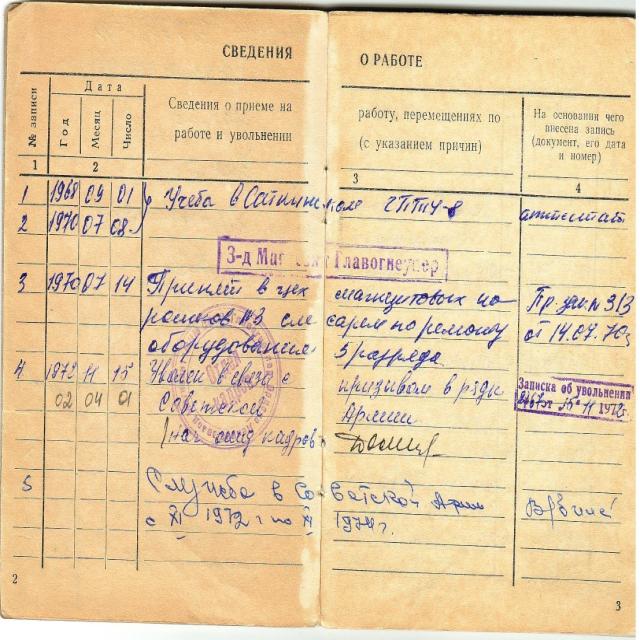 СВЕДЕНИЯ О РАБОТЕ
№ записи
Дата
Год Месяц Число
Сведения о приеме на работу, перемещениях по
работе и увольнении (с указанием причин)
На основании чего
внесена запись
(документ, его дата
и номер)
1 2 3 4
1 1968 09 01 Учеба в Саткинском ГПТУ-8 аттестат
2 1970 07 08
З-д Маг Главогнеупор
3 1970 07 14 Принят в цех магнезитовых по
№3 слесарем по ремонту Пр. зав. № 313
оборудования 5 разряда от 14.07.70г
4 1972 11 15 Уволен в связи с призывом в ряды Записка об увольнении
15 11 1972г.
02 04 01 Советской Армии
Нач. отд. кадров
5 Служба в Советской Армии
с XI 1972 г по XI 1974г.
2 3